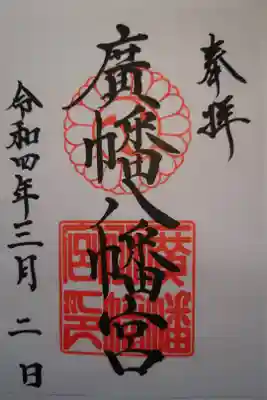 奉拝
廣幡八幡宮
令和四年三月二日